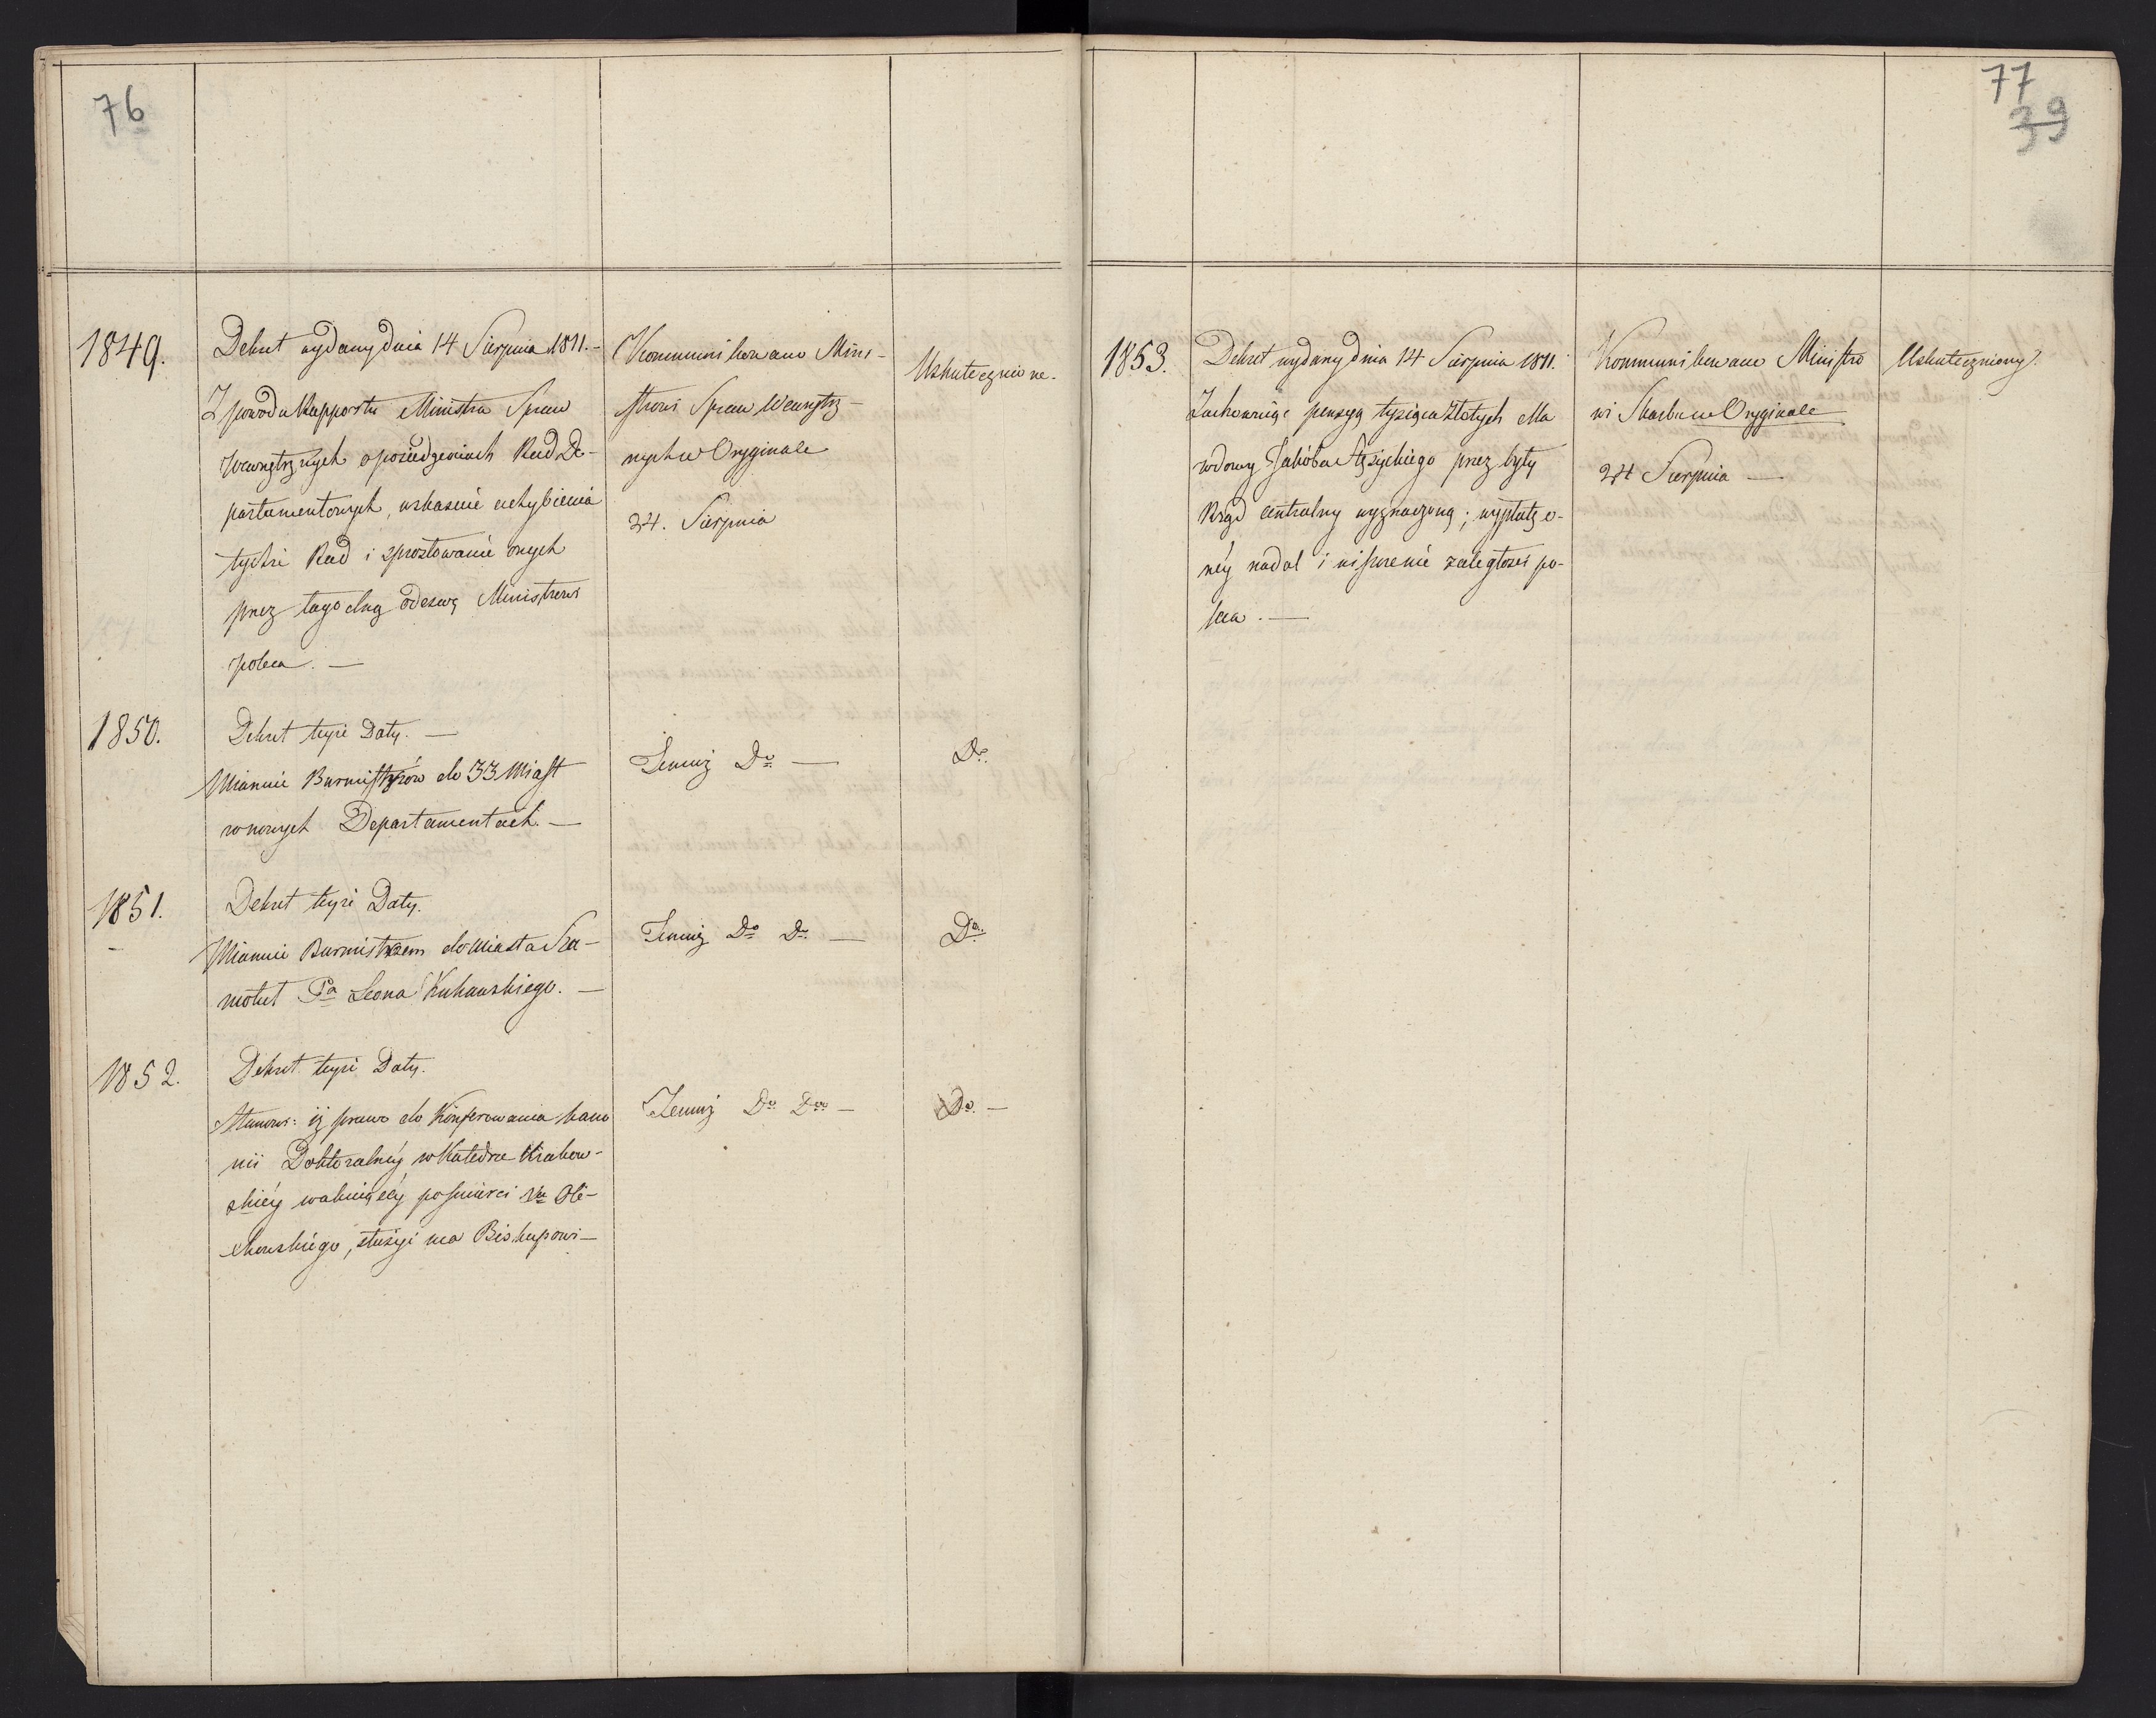 76
1849.
Dekret wydany dnia 14 Sierpnia 1811. -
Z powodu Rapportu Ministra Spraw
Wewnętrznych o posiedzeniach Rad De-
partamentowych, wskazuie uchybienia
tychże Rad i sprostowanie onych
przez łagodną odezwę Ministrowi
poleca. —
Kommunikowano Mini-
strowi Spraw Wewnętrz-
nych w Oryginale
24. Sierpnia
Uskutecznione.
1850.
Dekret teyże Daty. —
Mianuie Burmistrzów do 33 Miast
w nowych Departamentach. —
Temuż Do —
Do.
1851.
Dekret teyże Daty.
Mianuie Burmistrzem do Miasta Sza-
motuł Pa Leona Kukawskiego. —
Temuż Do Do —
Do.
1852.
Dekret teyże Daty.
Stanowi: iż prawo do Konferowania kano
nii Doktoralnéy w Katedrze Krakow-
skiéy wakuiącéy po śmierci Xa Ole-
chowskiego, służyć ma Biskupowi —
Temuż Do Do —
Do. —
77
39
1853.
Dekret wydany dnia 14 Sierpnia 1811.
Zachowuiąc pensyą tysiąca złotych dla
wdowy Jakóba przez były
Rząd centralny wyznaczoną; wypłatę o-
néy nadal i uiszczenie zaległości po-
leca. —
Kommunikowano Ministro
wi Skarbu w Oryginale
24 Sierpnia —
Uskuteczniony.